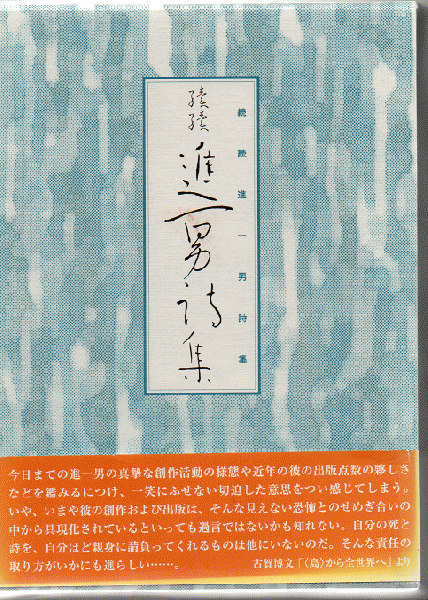 続続
進一男詩集
続続進一男詩集
今日までの進一男の真摯な創作活動の様態や近年の彼の出版点数の夥しさ
などを鑑みるにつけ、一笑にふせない切迫した意思をつい感じてしまう。
いや、いまや彼の創作および出版は、そんな見えない恐怖とのせめぎ合いの
中から具現化されているといっても過言ではないかも知れない。自分の死と
詩を、自分ほど親身に請負ってくれるものは他にいないのだ。そんな責任の
取り方がいかにも進らしい……。
古賀博文「〈島〉から全世界へ」より